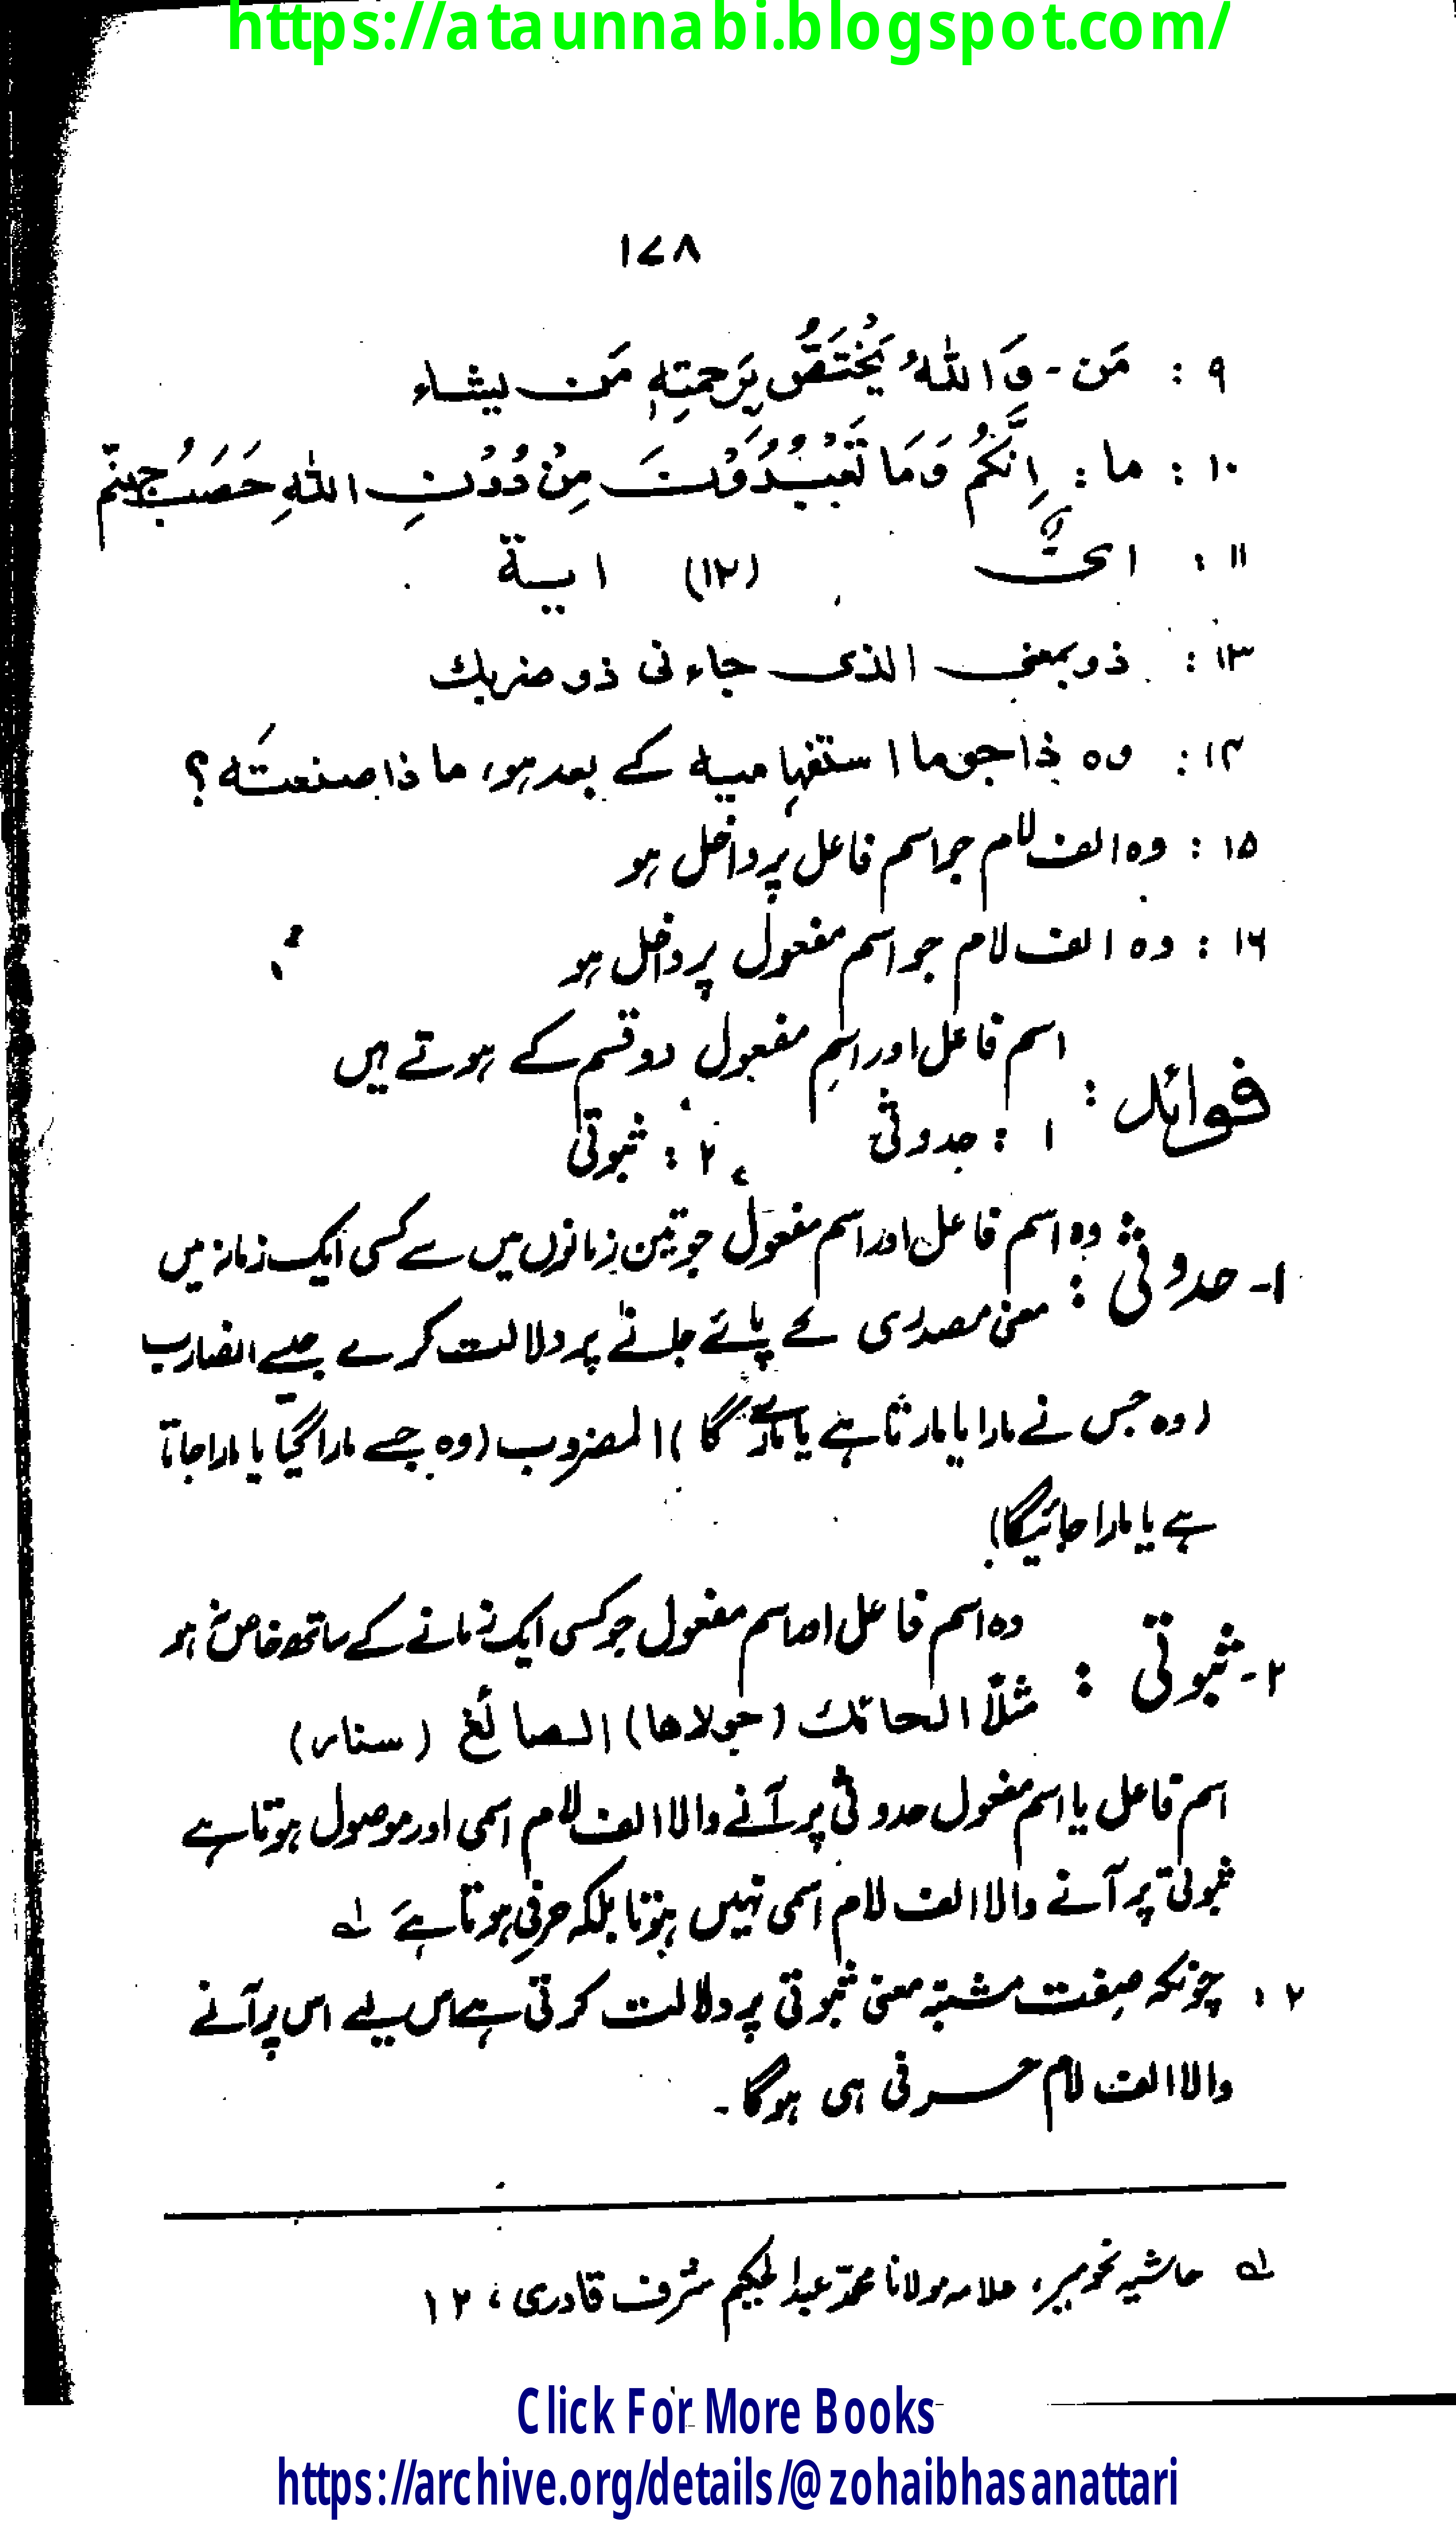 https://ataunnabi.blogspot.com/
۱۷۸
۹ : مَن - وَاللّٰهُ يَخْتَصُّ بِرَحمتِهٖ مَن يشاء
۱۰ : ما : اِنَّكُم وَمَا تَعْبُدُوْنَ مِنْ دُوْنِ اللّٰهِ حَصَبُ جہنّم
۱۱ : اىٌّ (۱۲) ایـة
۱۳ : ذو بمعنى الذى جاء نى ذو ضربك
۱۴ : وہ ذا جو ما استفہامیہ کے بعد ہو، ما ذا صنعتَہ ؟
۱۵ : وہ الف لام جو اسم فاعل پر داخل ہو
۱۶ : وہ الف لام جو اسم مفعول پر داخل ہو
فوائد : اسم فاعل اور اسم مفعول دو قسم کے ہوتے ہیں
۱ : حدوثی ۲ : ثبوتی
۱- حدوثی : وہ اسم فاعل اور اسم مفعول جو تین زمانوں میں سے کسی ایک زمانہ میں
معنی مصدری کے پائے جانے پر دلالت کرے جیسے الضارب
(وہ جس نے مارا یا مارتا ہے یا مارے گا) المضروب (وہ جسے مارا گیا یا مارا جاتا
ہے یا مارا جائیگا)
۲- ثبوتی : وہ اسم فاعل اور اسم مفعول جو کسی ایک زمانے کے ساتھ خاص نہ ہو
مثلاً الحائك (جولاھا) الصائغ (سنار)
اسم فاعل یا اسم مفعول حدوثی پر آنے والا الف لام اسمی اور موصول ہوتا ہے
ثبوتی پر آنے والا الف لام اسمی نہیں ہوتا بلکہ حرفی ہوتا ہے لہ
۲ : چونکہ صفت مشبّہ معنی ثبوتی پر دلالت کرتی ہے اس لیے اس پر آنے
والا الف لام حرفی ہی ہوگا ۔
لہ حاشیہ نحو میر، علامہ مولانا محمّد عبد الحکیم شرف قادری ، ۱۲
Click For More Books
https://archive.org/details/@zohaibhasanattari